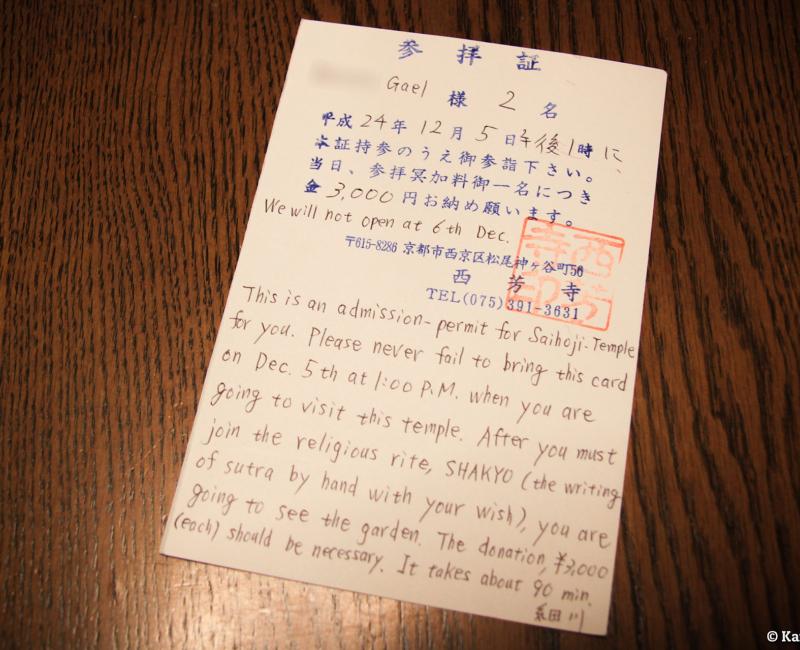 参拝証
Gael 様 2 名
平成 24 年 12 月 5 日 午後 1 時 に、
本証持参のうえ御参詣下さい。
当日、参拝冥加料御一名につき
金 3,000 円お納め願います。
We will not open at 6th Dec.
〒615-8286 京都市西京区松尾神ヶ谷町56
西芳寺
TEL(075)391-3631
西芳寺印
This is an admission-permit for Saihoji-Temple
for you. Please never fail to bring this card
on Dec. 5th at 1:00 P.M. when you are
going to visit this temple. After you must
join the religious rite, SHAKYO (the writing
of sutra by hand with your wish), you are
going to see the garden. The donation, ¥3,000
(each) should be necessary. It takes about 90 min.
細川
© Ka